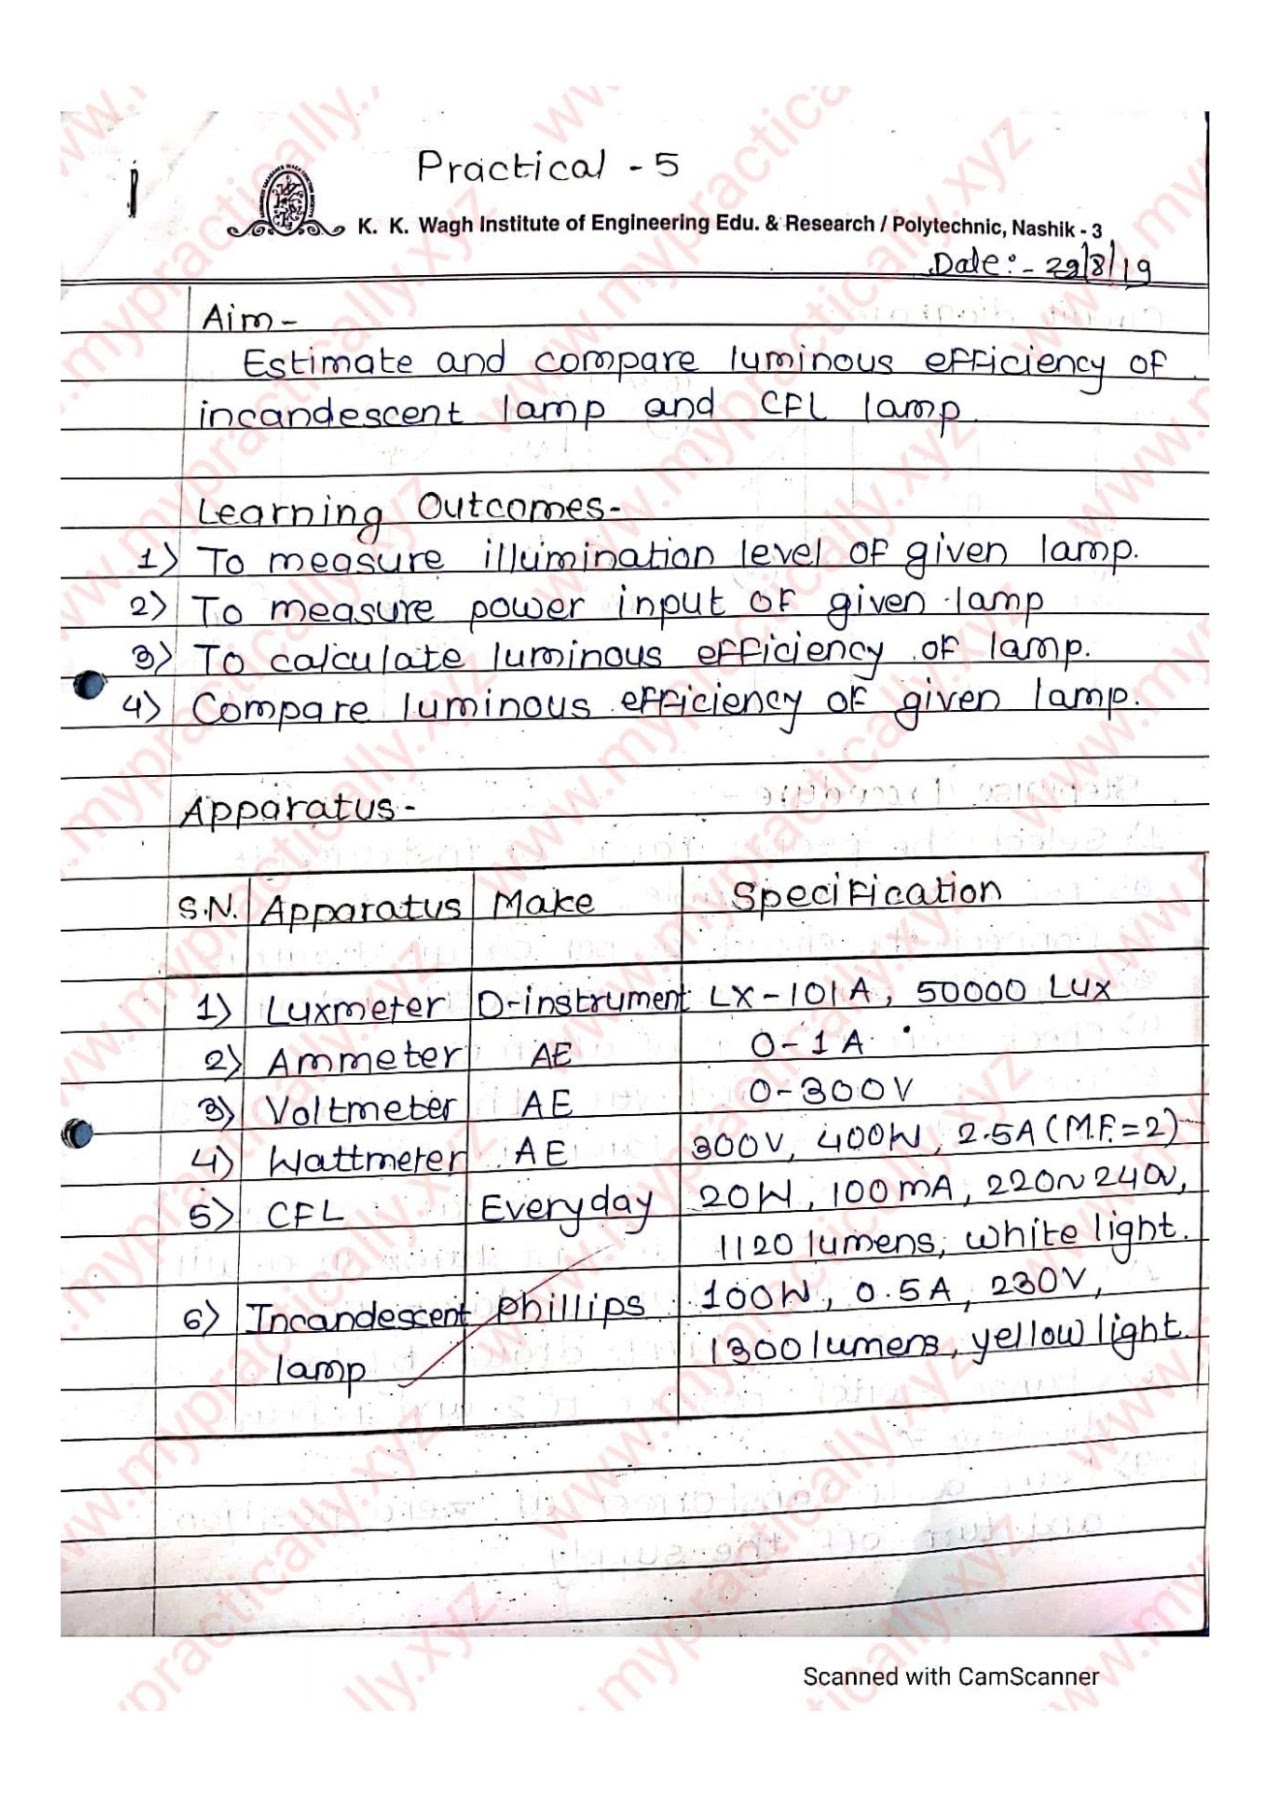 Practical - 5
K. K. Wagh Institute of Engineering Edu. & Research / Polytechnic, Nashik - 3
Date:- 29/8/19
Aim-
Estimate and compare luminous efficiency of
incandescent lamp and CFL lamp.
Learning Outcomes-
1) To measure illumination level of given lamp.
2) To measure power input of given lamp
3) To calculate luminous efficiency of lamp.
4) Compare luminous efficiency of given lamp.
Apparatus-
S.N. Apparatus Make Specification
1) Luxmeter D-instrument LX-101A, 50000 Lux
2) Ammeter AE 0-1A
3) Voltmeter AE 0-300V
4) Wattmeter AE 300V, 400W, 2.5A (M.F.=2)
5) CFL Everyday 20W, 100mA, 220~240V,
1120 lumens, white light.
6) Incandescent phillips 100W, 0.5A, 230V,
lamp 1300 lumens, yellow light.
Scanned with CamScanner
www.mypractically.xyz